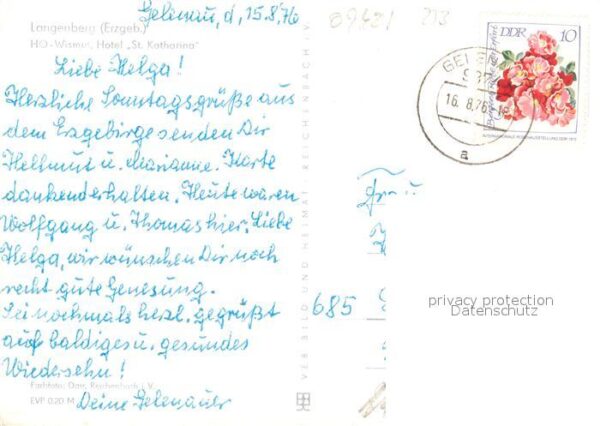 Gelenau, d. 15.8.76
09621
213
Langenberg (Erzgeb.)
HO-Wismut, Hotel „St. Katharina"
Liebe Helga!
Herzliche Sonntagsgrüße aus
dem Erzgebirge senden Dir
Hellmut u. Marianne. Karte
dankend erhalten. Heute waren
Wolfgang u. Thomas hier. Liebe
Helga, wir wünschen Dir noch
recht gute Genesung.
Sei nochmals herzl. gegrüßt
auf baldiges u. gesundes
Wiedersehn!
Farbfoto: Darr, Reichenbach i. V.
EVP 0,20 M
Deine Gelenauer
VEB BILD UND HEIMAT REICHENBACH I. V.
DDR 10
16.8.76
a
Frau
685
privacy protection
Datenschutz